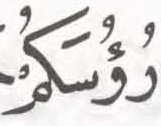 رُؤُسَكُمْ